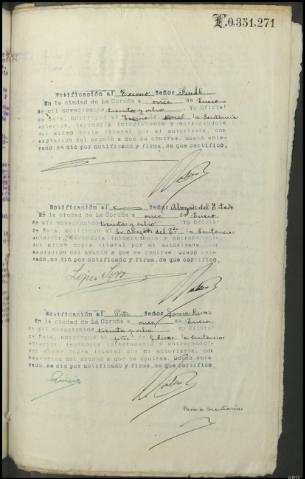 F.0.351.271
Notificación al Excmo. Señor Fiscal
En la ciudad de La Coruña a once de Enero
de mil novecientos treinta y ocho Yo Oficial
de Sala, notifiqué al Fiscal la Sentencia
anterior, leyéndola íntegramente y entregándole
en el acto copia literal por mi autorizada, con
expresión del asunto a que se contrae. Quedó ente-
rado, se dió por notificado y firma, de que certifico,
Notificación al Señor Abogado del Estado
En la ciudad de La Coruña a once de Enero
de mil novecientos treinta y ocho Yo Oficial
de Sala, notifiqué al Sr. Abogado del Eº la Sentencia
anterior, leyéndola íntegramente y entregándole
en el acto copia literal por mi autorizada, con
expresión del asunto a que se contrae. Quedó ente-
rado, se dió por notificado y firma, de que certifico,
Notificación al Señor
En la ciudad de La Coruña a once de Enero
de mil novecientos treinta y ocho Yo Oficial
de Sala, notifiqué al la Sentencia
anterior, leyéndola íntegramente y entregándole
en el acto copia literal por mi autorizada, con
expresión del asunto a que se contrae. Quedó ente-
rado, se dió por notificado y firma, de que certifico,